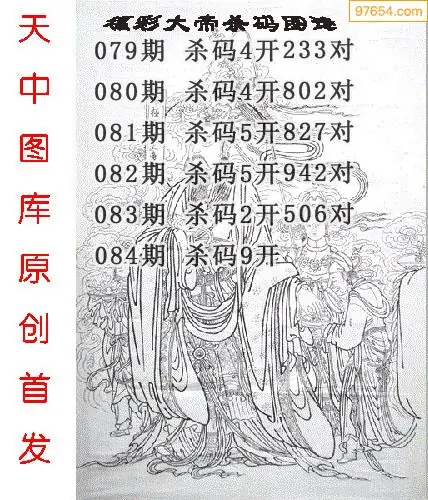 97654.com
福彩大帝杀码图
079期 杀码4开233对
080期 杀码4开802对
081期 杀码5开827对
082期 杀码5开942对
083期 杀码2开506对
084期 杀码9开
天中图库原创首发